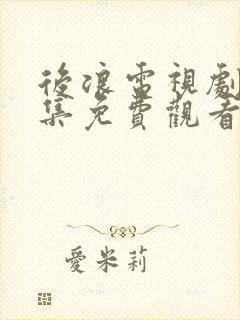 後浪電視劇
集免費觀看
愛米莉